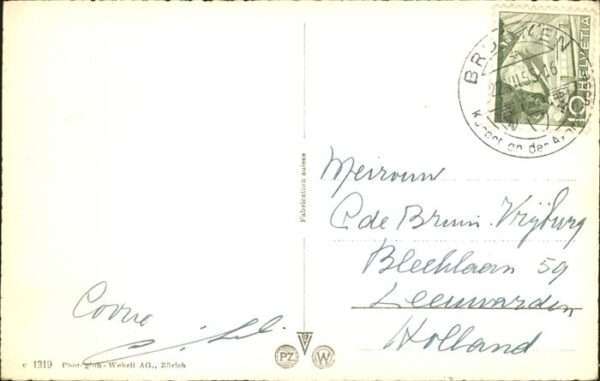 HELVETIA
10
BRUNNEN
Kurort an der Axen
Fabrication suisse
Mevrouw
C de Bruin-Vrijburg
Bleeklaan 59
Leeuwarden
Holland
Corrie
PZ W
c 1319 Photoglob-Wehrli AG., Zürich